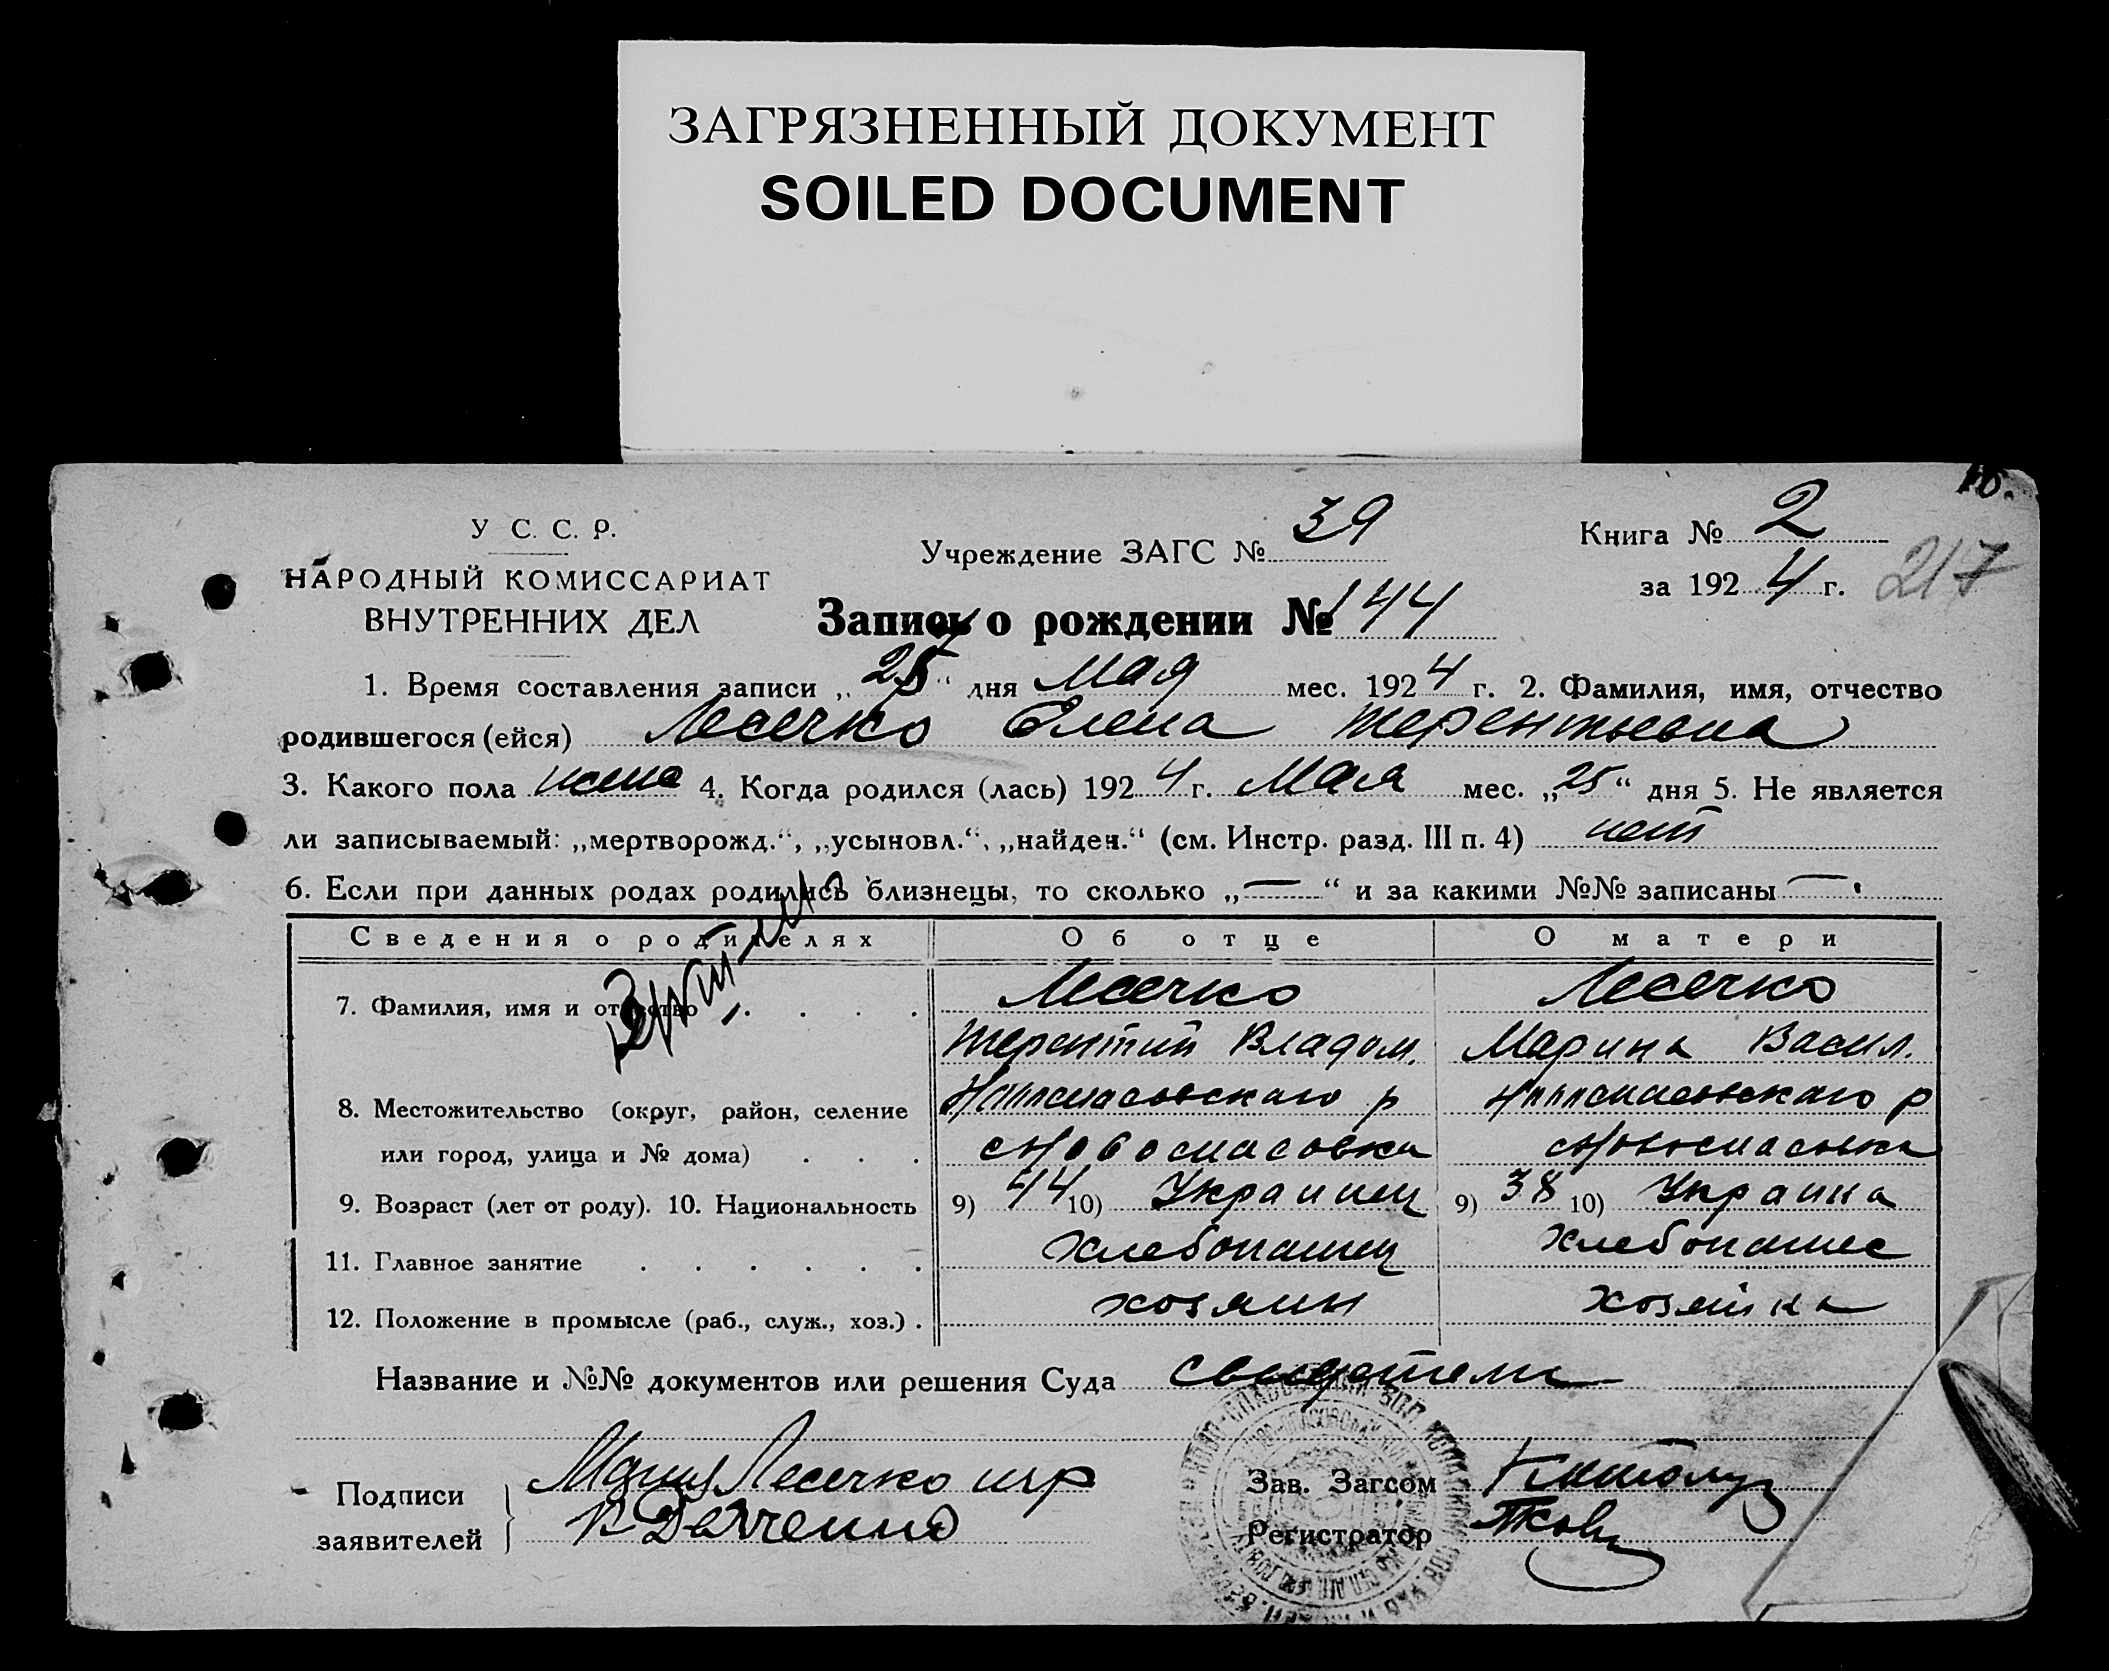 ЗАГРЯЗНЕННЫЙ ДОКУМЕНТ
SOILED DOCUMENT
У С. С. Р.
НАРОДНЫЙ КОМИССАРИАТ
ВНУТРЕННИХ ДЕЛ
Учреждение ЗАГС № 39
Книга № 2
за 1924 г. 217
Запись о рождении № 144
1. Время составления записи „25“ дня Мая мес. 1924 г. 2. Фамилия, имя, отчество
родившегося (ейся) Лесечко Елена Терентьевна
3. Какого пола жене 4. Когда родился (лась) 1924 г. Мая мес. „25“ дня 5. Не является
ли записываемый: „мертворожд.“, „усыновл.“, „найден.“ (см. Инстр. разд. III п. 4) нет
6. Если при данных родах родились близнецы, то сколько „—“ и за какими №№ записаны —
Сведения о родителях Об отце О матери
7. Фамилия, имя и отчество . . . . Лесечко Лесечко
Терентий Владом. Марина Васил.
8. Местожительство (округ, район, селение р р
или город, улица и № дома) . . . с Новоспасовка с Новоспасовка
9. Возраст (лет от роду). 10. Национальность 9) 44 10) Украинец 9) 38 10) Украинка
11. Главное занятие . . . . . . Хлебопашец Хлебопашес
12. Положение в промысле (раб., служ., хоз.) . хозяин хозяйка
Название и №№ документов или решения Суда свидетели
Подписи Лесечко Зав. Загсом
заявителей Регистратор